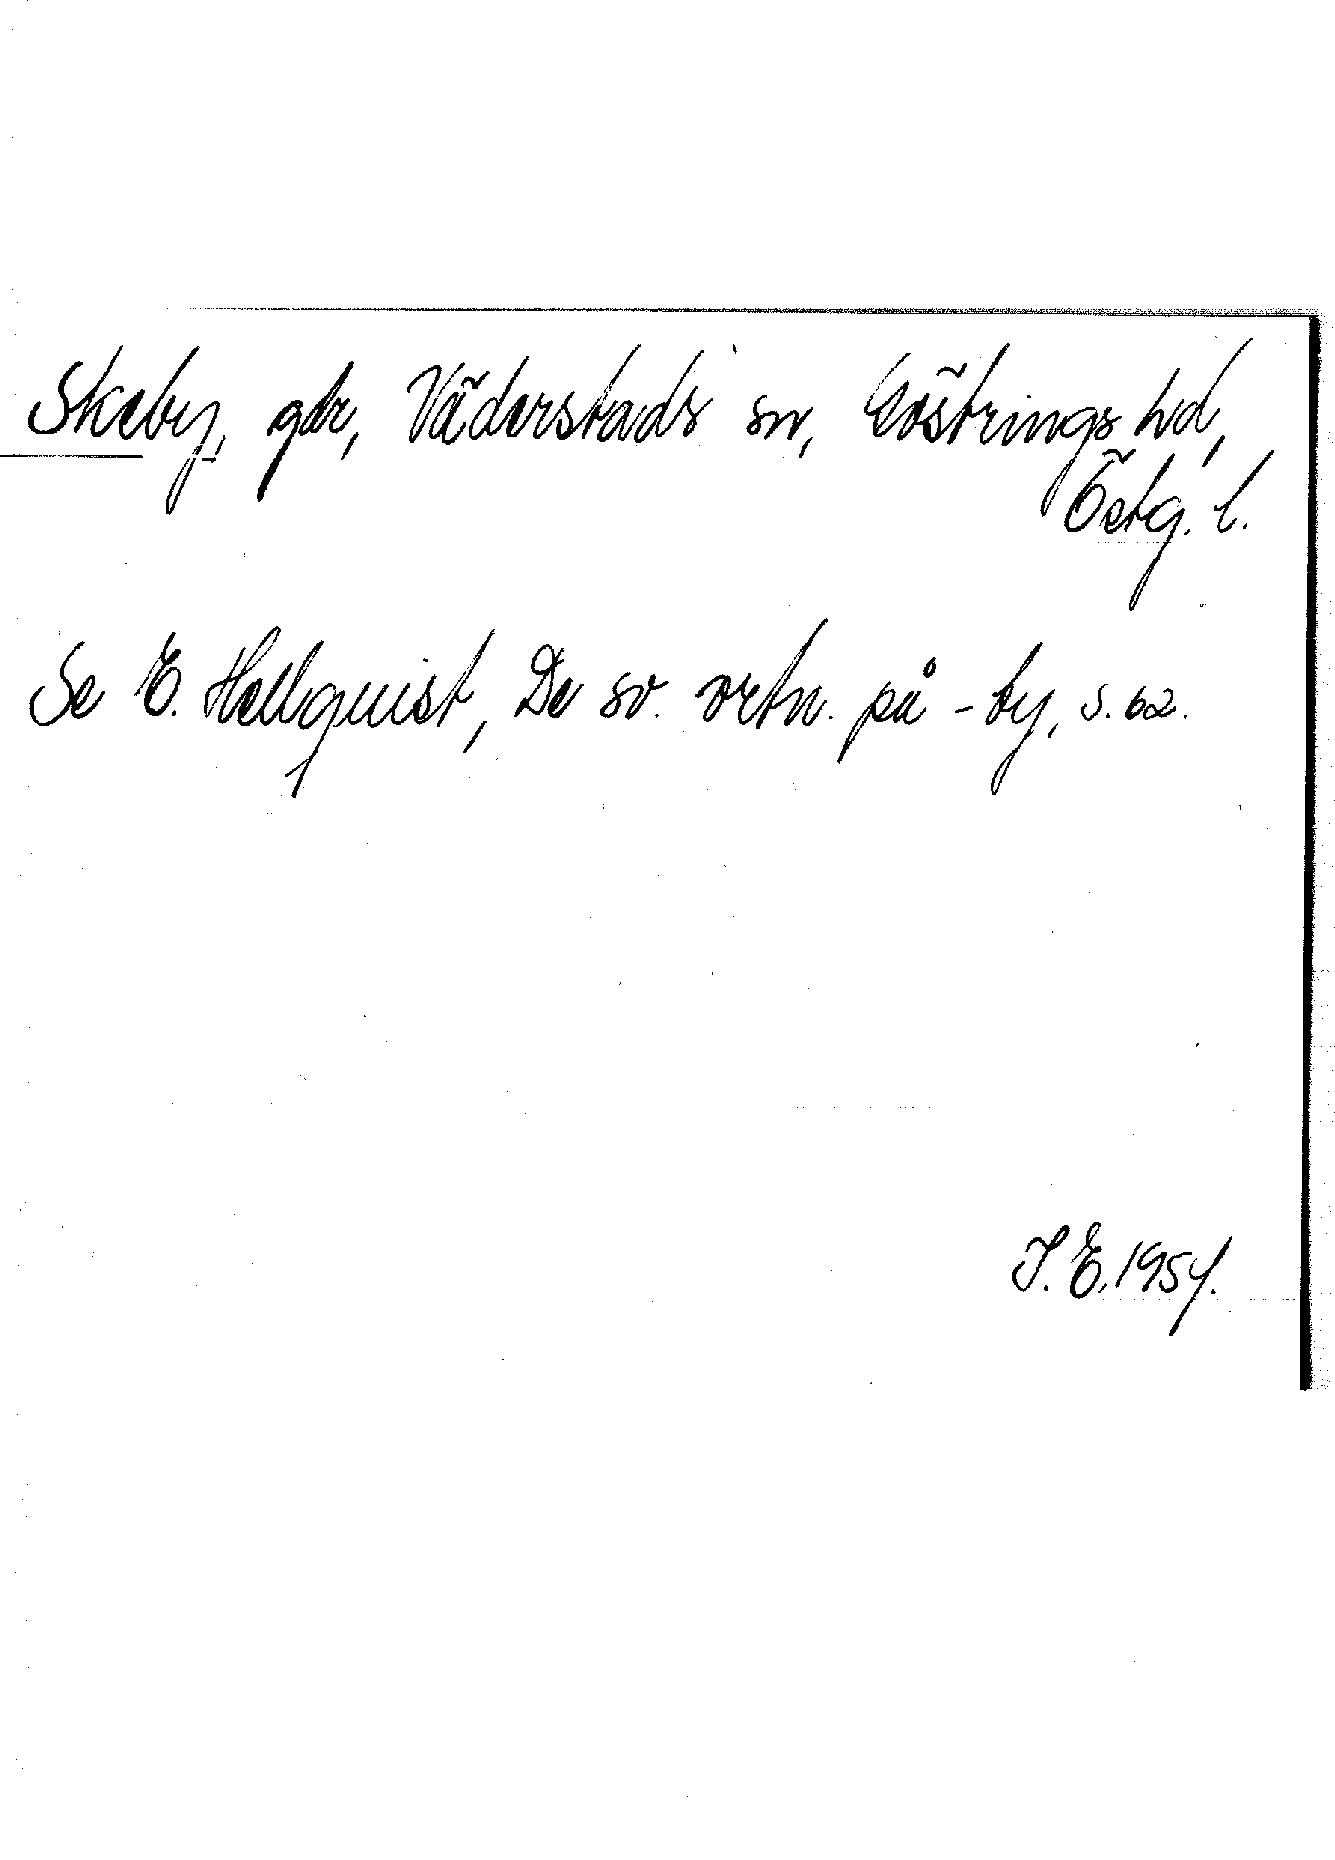 Skeby, gdr, Väderstads sn, Göstrings hd,
Östg. l.
Se E. Hellquist, De sv. ortn. på -by, s. 62.
I. E. 1954.